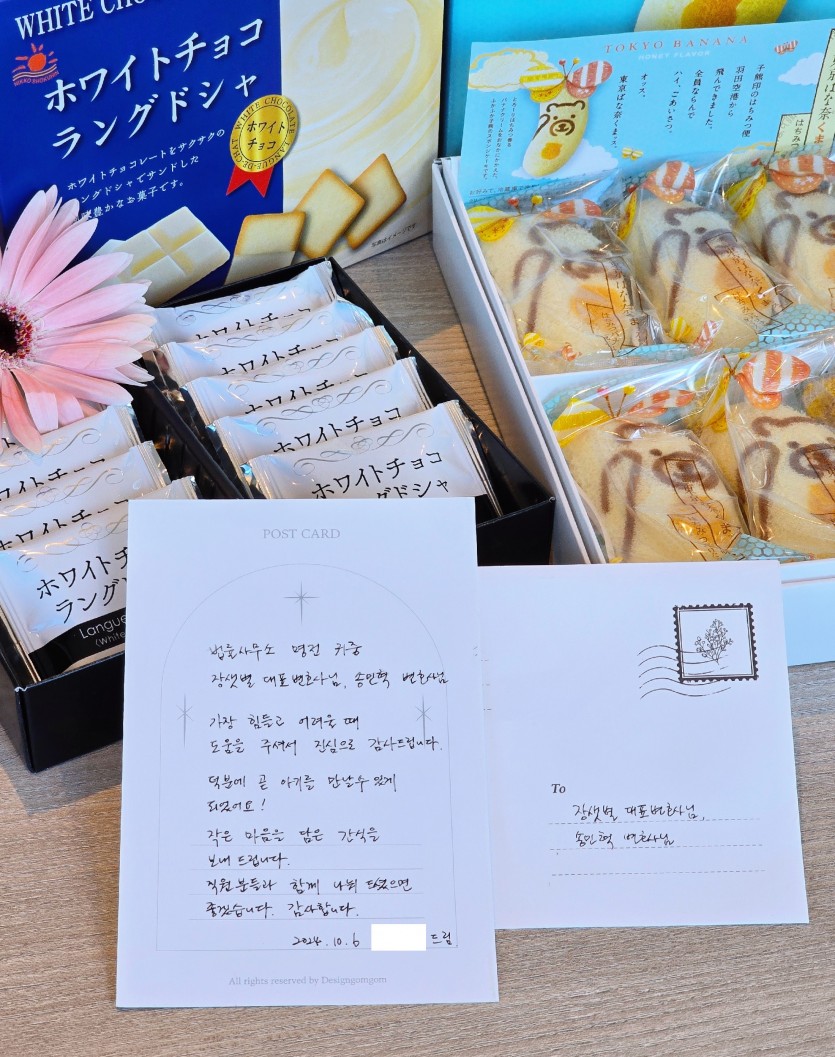 WHITE
ホワイトチョコ
ラングドシャ
NIKKO SHOKUHIN
WHITE CHOCOLATE LANGUE-DE-CHAT
ホワイト
チョコ
ホワイトチョコレートをサクサクの
ングドシャでサンドした
豊かなお菓子です。
TOKYO BANANA
HONEY FLAVOR
子熊印のはちみつ便
羽田空港から
飛んできました。
全員ならんで
ハイ、ごあいさつ。
オッス、
東京ばな奈くまッス。
ホワイトチョコ
ホワイトチョコ
ホワイトチョコ
ホワイトチョコ
ホワイトチョコ
ングドシャ
ホワイトチョコ
ラングドシャ
Langue
(White
POST CARD
법률사무소 명전 귀중
장샛별 대표변호사님, 송민혁 변호사님
가장 힘들고 어려울 때
도움을 주셔서 진심으로 감사드립니다.
덕분에 곧 아기를 만날수 있게
되었어요!
작은 마음을 담은 간식을
보내 드립니다.
직원분들과 함께 나눠 드셨으면
좋겠습니다. 감사합니다.
2024.10.6 드림
All rights reserved by Designgomgom
To
장샛별 대표변호사님,
송민혁 변호사님